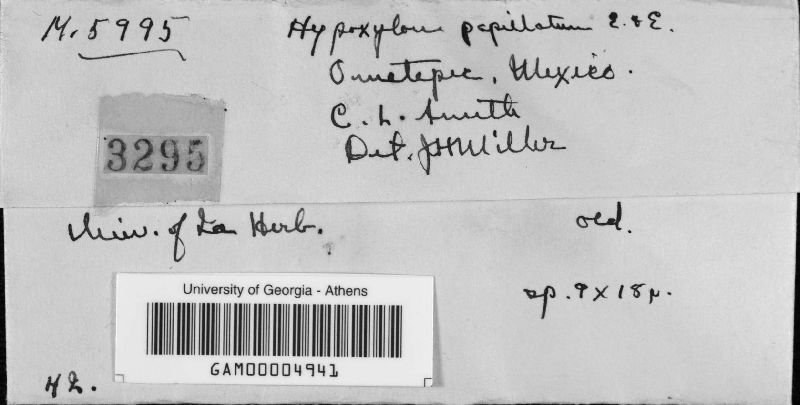 M. 5995
Hypoxylon papillatum E. & E.
Ometepec, Mexico.
C. L. Smith
Det. JHMiller
3295
Univ. of Ia Herb.
old.
sp. 9 x 18 µ.
University of Georgia - Athens
GAM00004941
42.